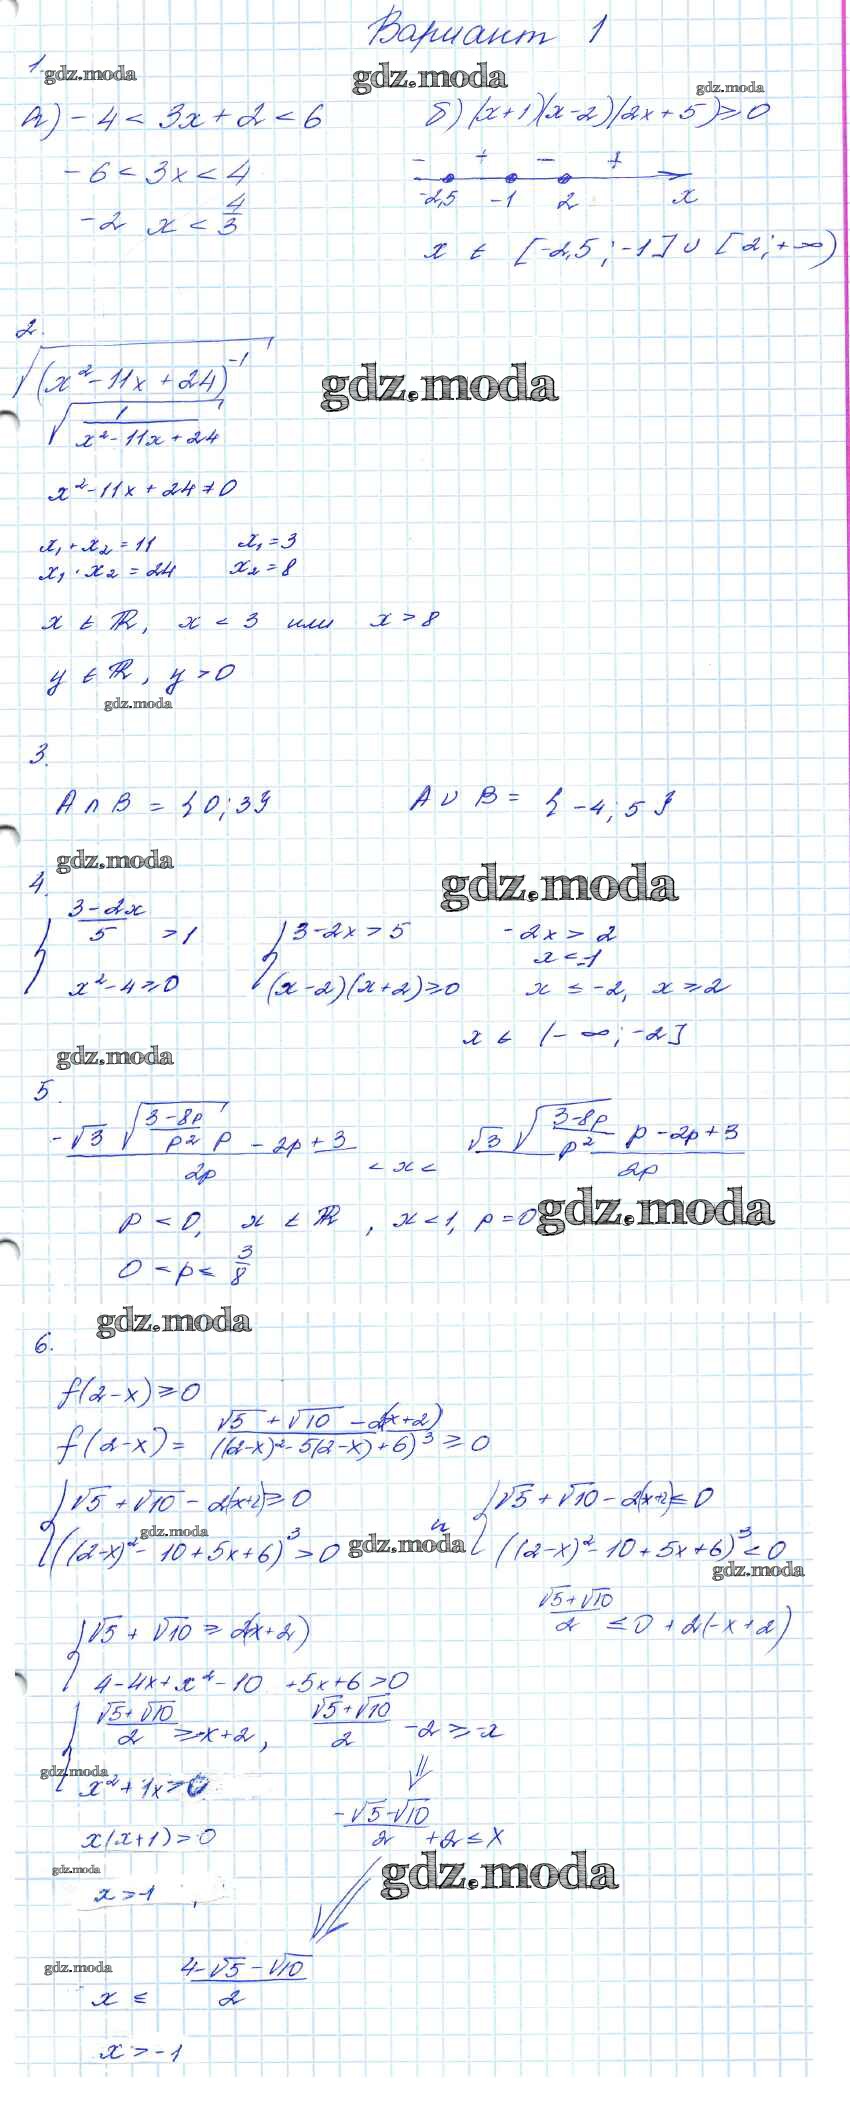 Вариант 1
1.
gdz.moda
gdz.moda
gdz.moda
а) -4 < 3x + 2 < 6
-6 < 3x < 4
-2 x < 4/3
б) (x+1)(x-2)(2x+5) ≥ 0
- + - +
-2,5 -1 2 x
x ∈ [-2,5; -1] ∪ [2; +∞)
2.
√(x² - 11x + 24)⁻¹
gdz.moda
√(1/(x² - 11x + 24))
x² - 11x + 24 ≠ 0
x₁ + x₂ = 11 x₁ = 3
x₁ · x₂ = 24 x₂ = 8
x ∈ ℝ, x < 3 или x > 8
y ∈ ℝ, y > 0
gdz.moda
3.
A ∩ B = {0; 3} A ∪ B = {-4; 5}
gdz.moda
gdz.moda
4.
{ (3-2x)/5 > 1 { 3-2x > 5 -2x > 2
x < -1
x² - 4 ≥ 0 (x-2)(x+2) ≥ 0 x ≤ -2, x ≥ 2
x ∈ (-∞; -2]
gdz.moda
5.
(-√3 √((3-8p)/p²) p - 2p + 3)/2p < x < (√3 √((3-8p)/p²) p - 2p + 3)/2p
p < 0, x ∈ ℝ, x < 1, p = 0
gdz.moda
0 < p ≤ 3/8
gdz.moda
6.
f(2-x) ≥ 0
f(2-x) = (√5 + √10 - 2(x+2))/((2-x)² - 5(2-x) + 6)³ ≥ 0
{ √5 + √10 - 2(x+2) ≥ 0 и { √5 + √10 - 2(x+2) ≤ 0
((2-x)² - 10 + 5x + 6)³ > 0 ((2-x)² - 10 + 5x + 6)³ < 0
gdz.moda
gdz.moda
gdz.moda
(√5+√10)/2 ≤ 0 + 2(-x+2)
{ √5 + √10 ≥ 2(x+2)
4 - 4x + x² - 10 + 5x + 6 > 0
{ (√5+√10)/2 ≥ -x+2, (√5+√10)/2 - 2 ≥ -x
gdz.moda
x² + 1x > 0
(-√5-√10)/2 + 2 ≤ x
x(x+1) > 0
gdz.moda
gdz.moda
x > -1,
gdz.moda
x ≤ (4-√5-√10)/2
x > -1